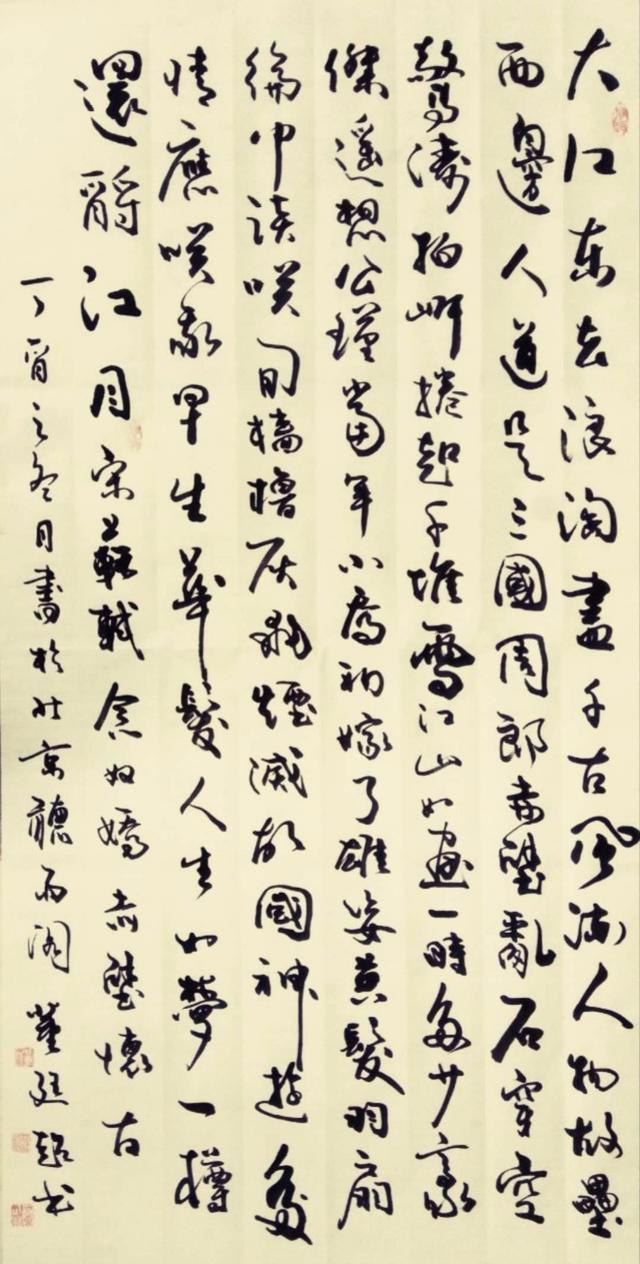 大江东去浪淘盡千古風流人物故壘
西邊人道是三國周郎赤壁亂石穿空
驚濤拍岍捲起千堆雪江山如畫一時多少豪
傑遥想公瑾當年小喬初嫁了雄姿英髮羽扇
綸巾談咲間檣櫓灰飛煙滅故國神遊多
情應咲我早生華髮人生如夢一樽
還酹江月宋蘇軾念奴嬌赤壁懷古
丁酉之冬月書於北京聽雨閣董廷超书